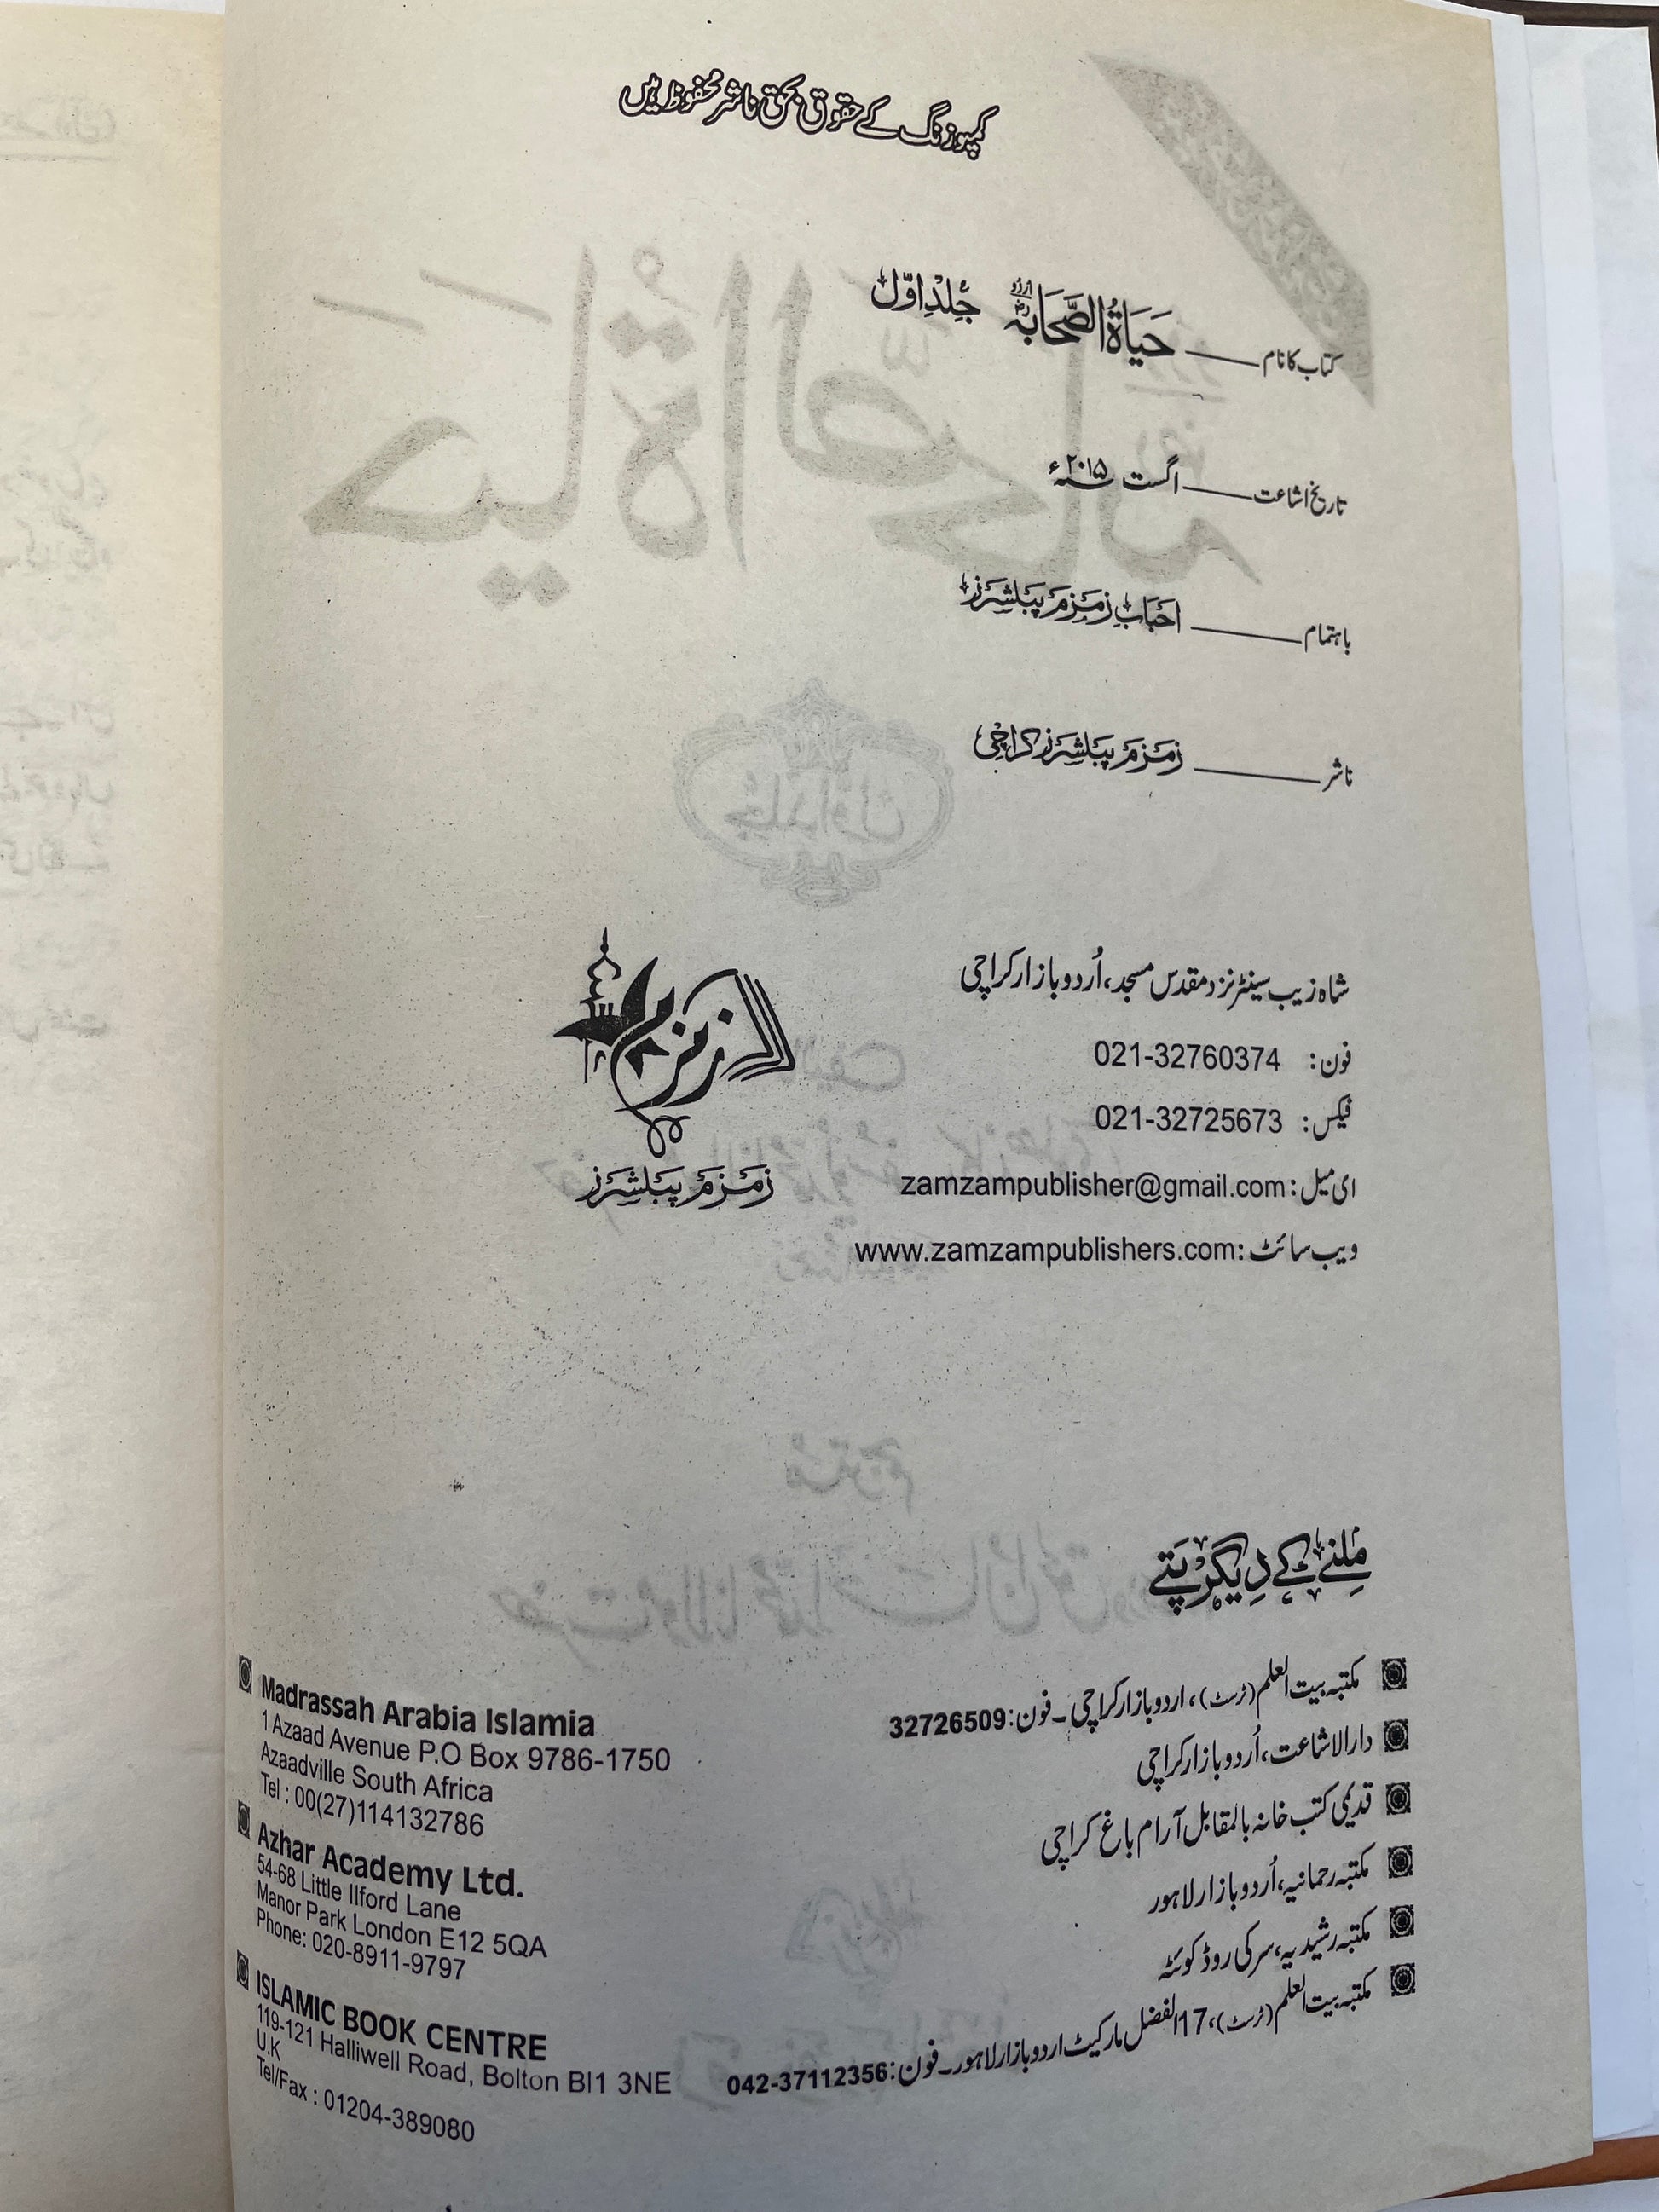 کمپوزنگ کے حقوق بحق ناشر محفوظ ہیں
کتاب کا نام ــــــ حَیَاۃُ الصَّحَابَہ اردو جِلدِ اوّل
تاریخ اشاعت ــــــ اگست ۲۰۱۵ء
باہتمام ــــــ احباب زمزم پبلشرز
ناشر ــــــ زمزم پبلشرز کراچی
شاہ زیب سینٹر نزد مقدس مسجد، اُردو بازار کراچی
فون: 021-32760374
فیکس: 021-32725673
ای میل: zamzampublisher@gmail.com
ویب سائٹ: www.zamzampublishers.com
زمزم
زمزم پبلشرز
مِلنے کے دِیگر پَتے
مکتبہ بیت العلم (ٹرسٹ)، اردو بازار کراچی ۔ فون: 32726509
دارالاشاعت، اُردو بازار کراچی
قدیمی کتب خانہ بالمقابل آرام باغ کراچی
مکتبہ رحمانیہ، اُردو بازار لاہور
مکتبہ رشیدیہ، سرکی روڈ کوئٹہ
مکتبہ بیت العلم (ٹرسٹ)، 17 الفضل مارکیٹ اردو بازار لاہور ۔ فون: 042-37112356
Madrassah Arabia Islamia
1 Azaad Avenue P.O Box 9786-1750
Azaadville South Africa
Tel : 00(27)114132786
Azhar Academy Ltd.
54-68 Little Ilford Lane
Manor Park London E12 5QA
Phone: 020-8911-9797
ISLAMIC BOOK CENTRE
119-121 Halliwell Road, Bolton Bl1 3NE
U.K
Tel/Fax : 01204-389080